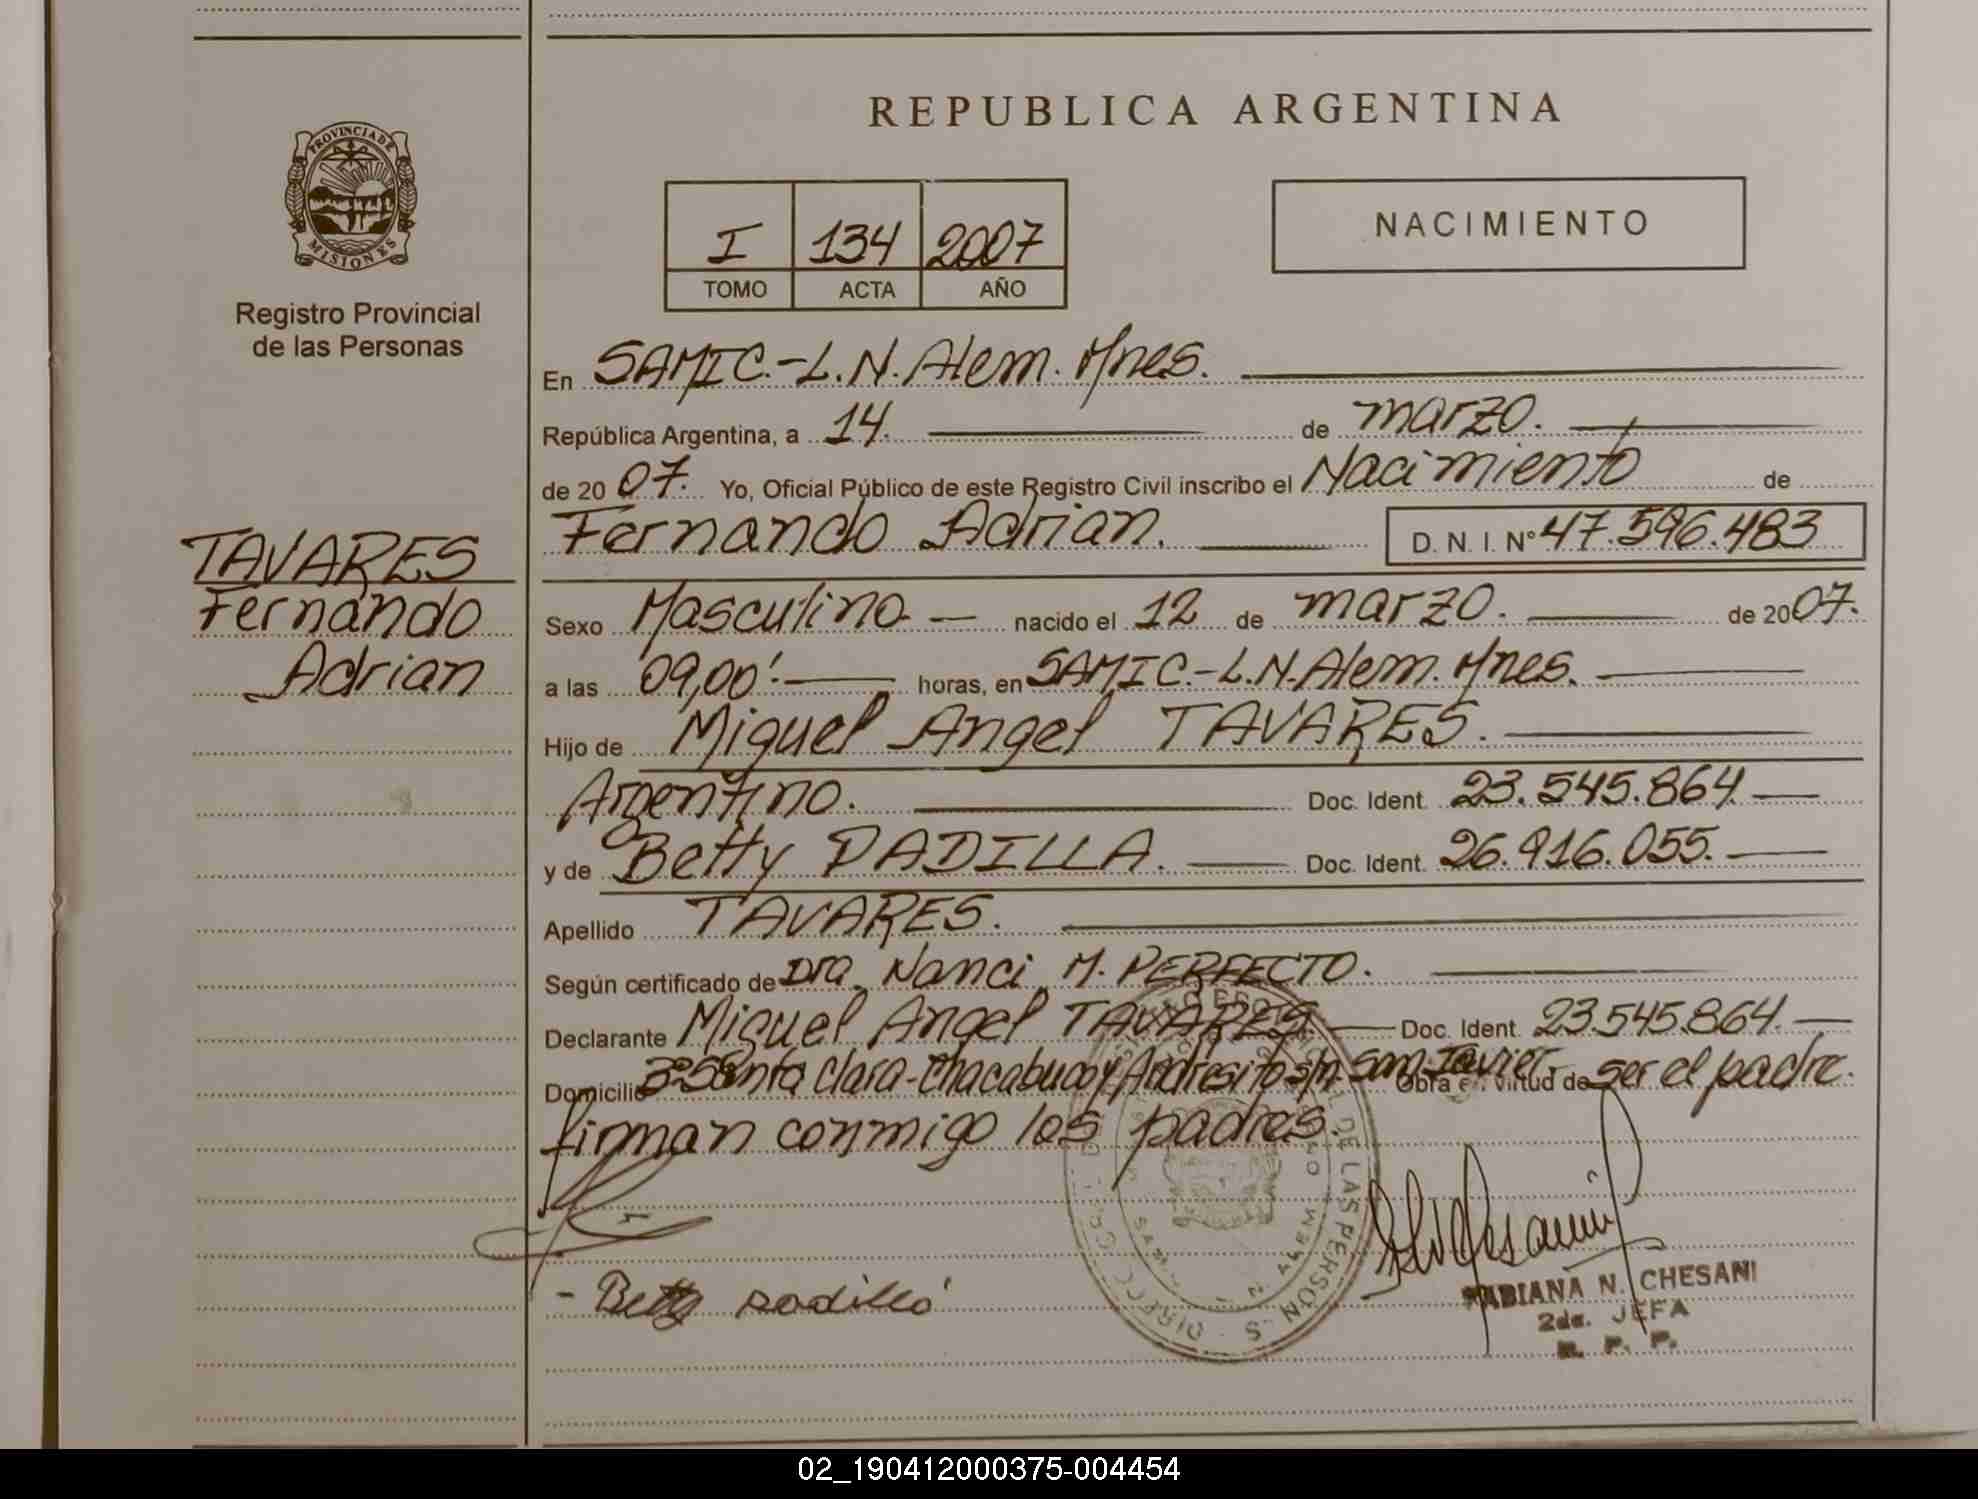 REPUBLICA ARGENTINA
PROVINCIA DE
MISIONES
Registro Provincial
de las Personas
NACIMIENTO
I 134 2007
TOMO ACTA AÑO
En SAMIC.-L.N.Alem. Mnes.
República Argentina, a 14. de marzo.
de 2007. Yo, Oficial Público de este Registro Civil inscribo el Nacimiento de
Fernando Adrian. D. N. I. Nº 47.596.483
TAVARES
Fernando
Adrian
Sexo Masculino nacido el 12 de marzo. de 2007.
a las 09,00'. horas, en SAMIC.-L.N.Alem. Mnes.
Hijo de Miguel Angel TAVARES.
Argentino. Doc. Ident. 23.545.864.
y de Betty PADILLA. Doc. Ident. 26.916.055.
Apellido TAVARES.
Según certificado de Dra. Nanci M. PERFECTO.
Declarante Miguel Angel TAVARES. Doc. Ident. 23.545.864.
Domicilio Santa Clara-Chacabuco y Andresito s/n San Javier. Obra en virtud de ser el padre.
firman conmigo los padres.
- Betty Padilla
FABIANA N. CHESANI
2da. JEFA
R. P. P.
DE LAS PERSONAS
02_190412000375-004454